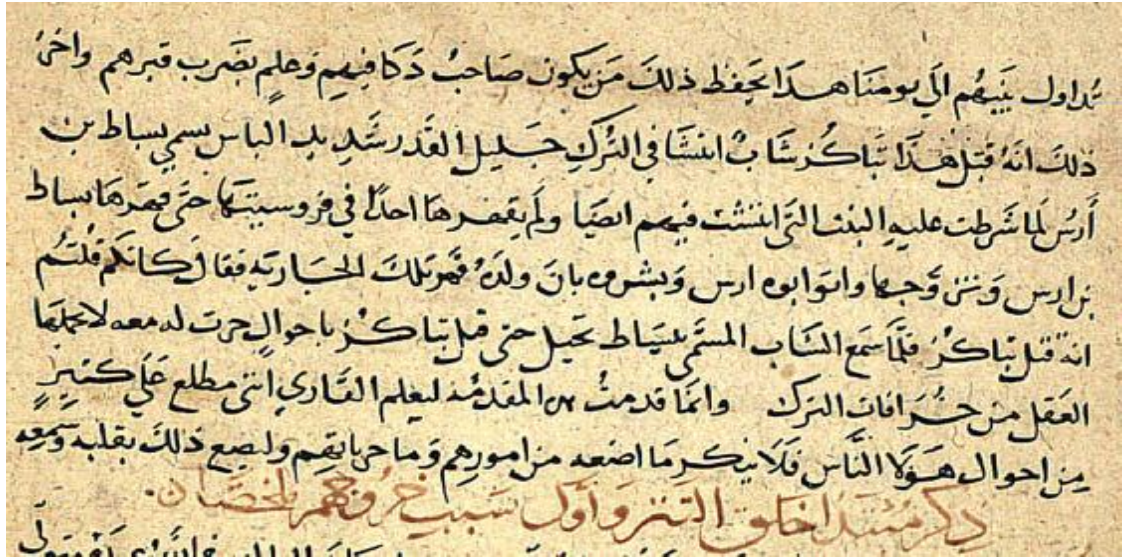 تداول بينهم الي يومنا هذا يحفظ ذلك من يكون صاحب ذكا فيهم وعلم بضرب قبزهم واخر
ذلك انه قبل هذا تباكز شاب انتشا في الترك جليل القدر شديد الباس يسمي بساط بن
أرس لما شرطت عليه البنت التي انتشت فيهم ايضا ولم يقهرها احدا في فروسيتها حتى قهرها بساط
بن ارس وتزوجها واتوا ابوه ارس وبشروه بان ولده قهر تلك الجارية فقال كانكم قلتم
انه قتل تباكز فلما سمع الشاب المسمى ببساط تحيل حتى قتل تباكز باحوال جرت له معه لا يحملها
العقل من خرافات الترك وانما قدمت هذه المقدمه ليعلم القاري انني مطلع على كثير
من احوال هولا الناس فلا ينكر ما اضعه من امورهم وما جرياتهم وليضع ذلك بقلبه وسمعه
ذكر مبتدا خلق التتر واول سبب خروجهم ملخصا